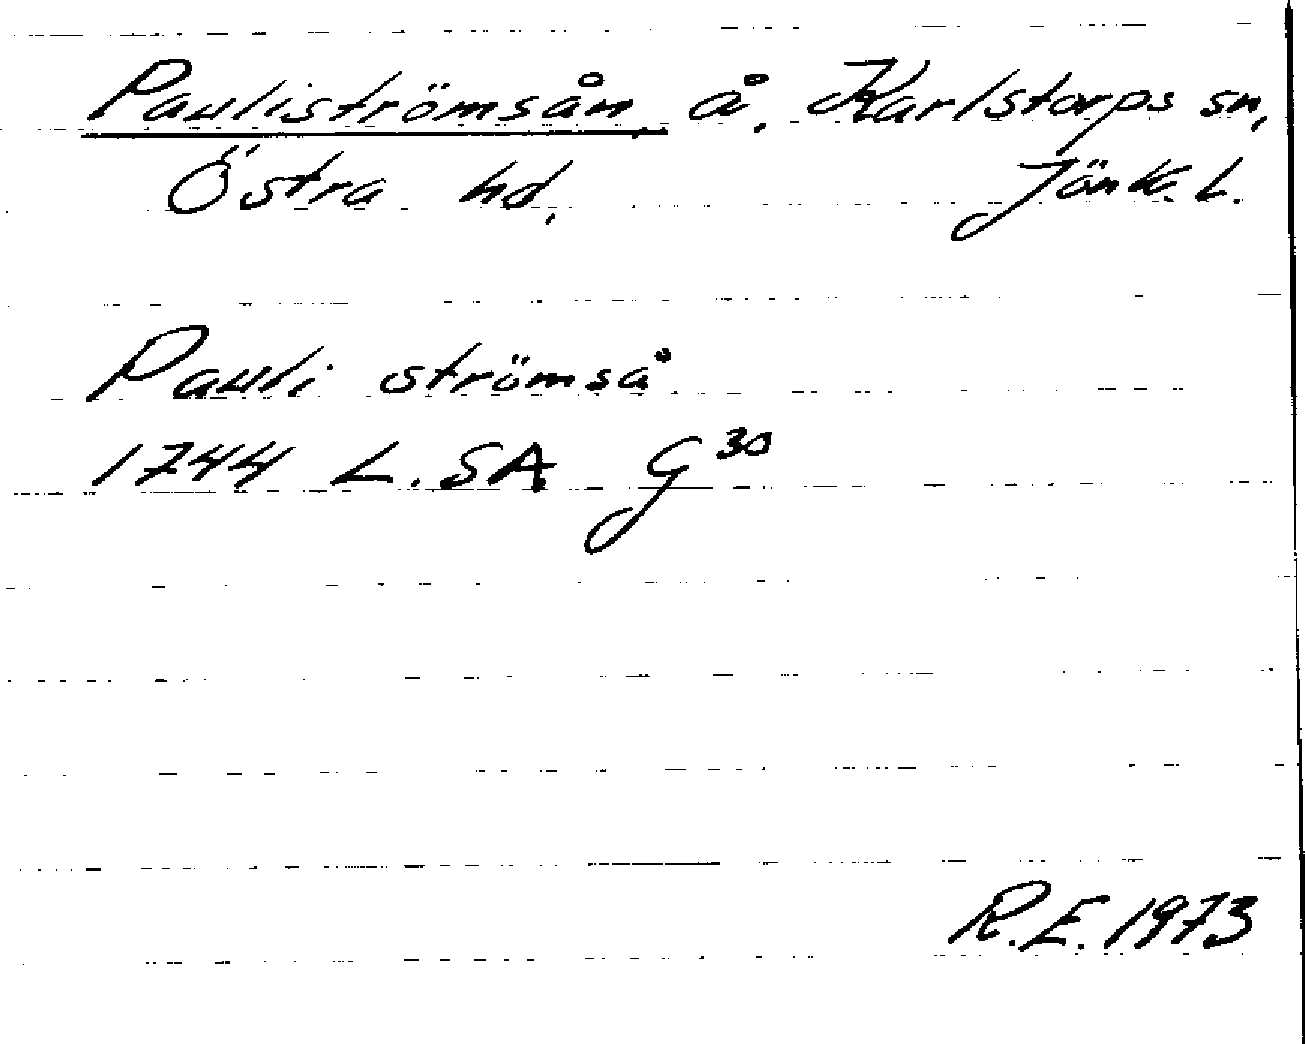 Pauliströmsån, å, Karlstorps sn,
Östra hd, Jönk. L.
Pauli strömså
1744 L.SA G 30
R.E. 1973